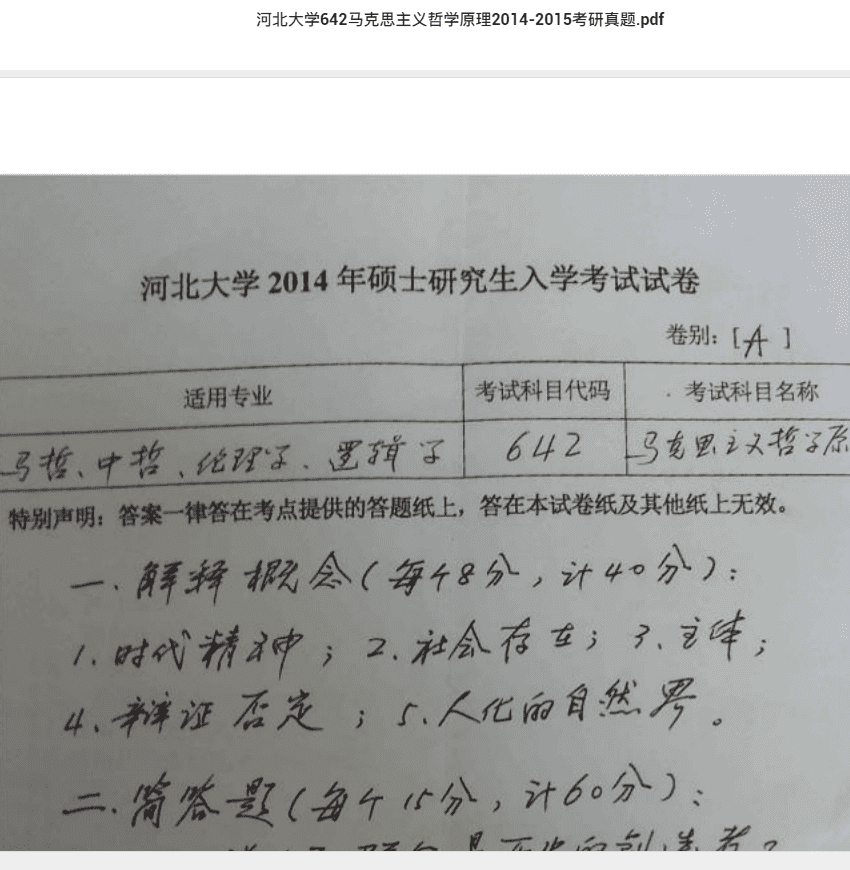 河北大学642马克思主义哲学原理2014-2015考研真题.pdf
河北大学 2014 年硕士研究生入学考试试卷
卷别：[A]
适用专业 考试科目代码 考试科目名称
马哲、中哲、伦理学、逻辑学 642 马克思主义哲学原
特别声明：答案一律答在考点提供的答题纸上，答在本试卷纸及其他纸上无效。
一、解释概念（每个8分，计40分）：
1、时代精神；2、社会存在；3、主体；
4、辩证否定；5、人化的自然界。
二、简答题（每个15分，计60分）：